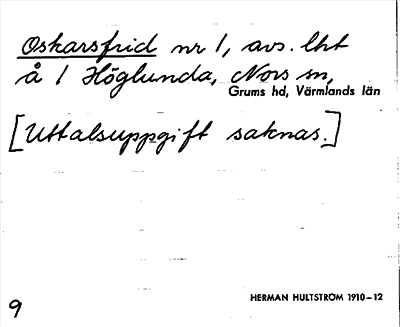 Oskarsfrid nr 1, avs. lht
å 1 Höglunda, Nors sn,
Grums hd, Värmlands län
[Uttalsuppgift saknas.]
HERMAN HULTSTRÖM 1910-12
9